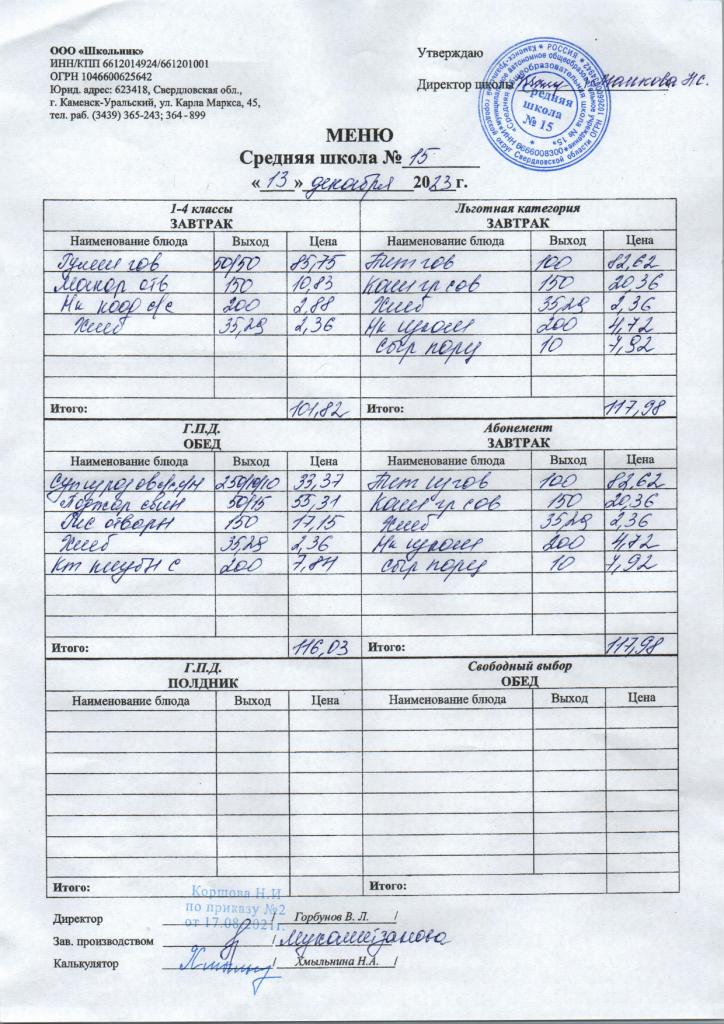 ООО «Школьник»
ИНН/КПП 6612014924/661201001
ОГРН 1046600625642
Юрид. адрес: 623418, Свердловская обл.,
г. Каменск-Уральский, ул. Карла Маркса, 45,
тел. раб. (3439) 365-243; 364-899
Утверждаю
Директор школы
Средняя школа № 15
МЕНЮ
Средняя школа № 15
« 13 » декабря 2023 г.
1-4 классы
ЗАВТРАК
Наименование блюда Выход Цена
Гуляш гов 50/50 85,75
Макар отв 150 10,83
200 2,88
Хлеб 35,29 2,36
Итого: 101,82
Льготная категория
ЗАВТРАК
Наименование блюда Выход Цена
гов 100 82,62
150 20,36
Хлеб 35,29 2,36
200 4,72
Сыр порц 10 7,92
Итого: 117,98
Г.П.Д.
ОБЕД
Наименование блюда Выход Цена
250/10/10 33,37
Поджар свин 50/15 55,31
Рис отварн 150 17,15
Хлеб 35,29 2,36
200 7,84
Итого: 116,03
Абонемент
ЗАВТРАК
Наименование блюда Выход Цена
100 82,62
150 20,36
Хлеб 35,29 2,36
200 4,72
Сыр порц 10 7,92
Итого: 117,98
Г.П.Д.
ПОЛДНИК
Наименование блюда Выход Цена
Итого:
Свободный выбор
ОБЕД
Наименование блюда Выход Цена
Итого:
Коршова Н.И
по приказу №2
от 17.08.2021г.
Директор / Горбунов В. Л. /
Зав. производством /
Калькулятор / Хмыльнина Н.А. /